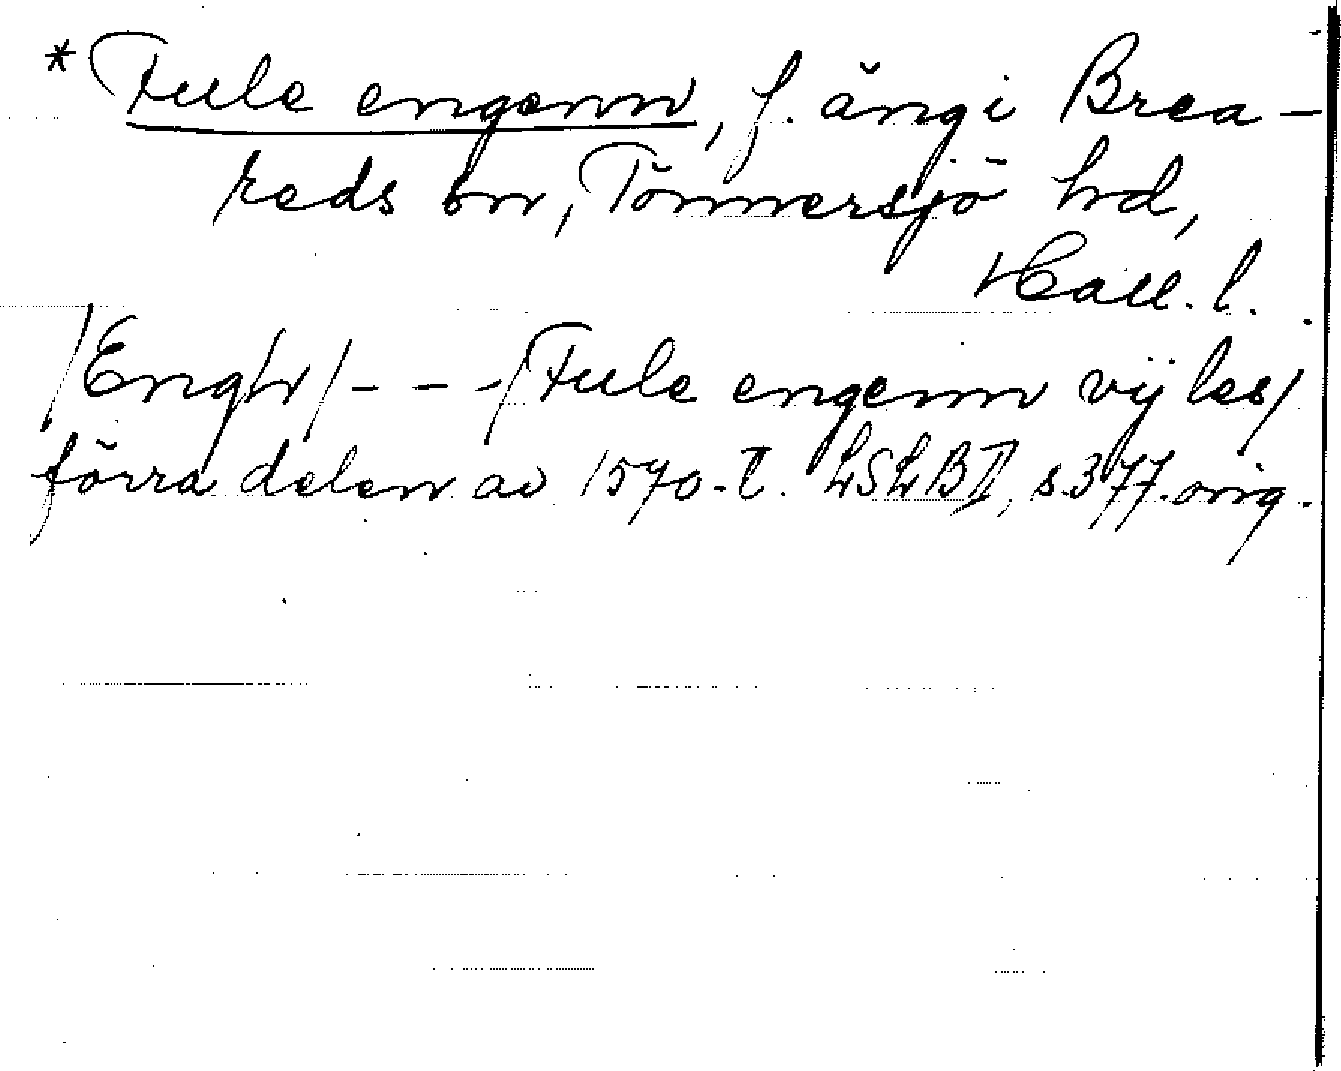 * Fule engenn, f. äng i Brea-
reds sn, Tönnersjö hd,
Hall. l.
/Engh/ - - - /Fule engenn vij les/
förra delen av 1570-t. LSLB II, s. 377. orig.